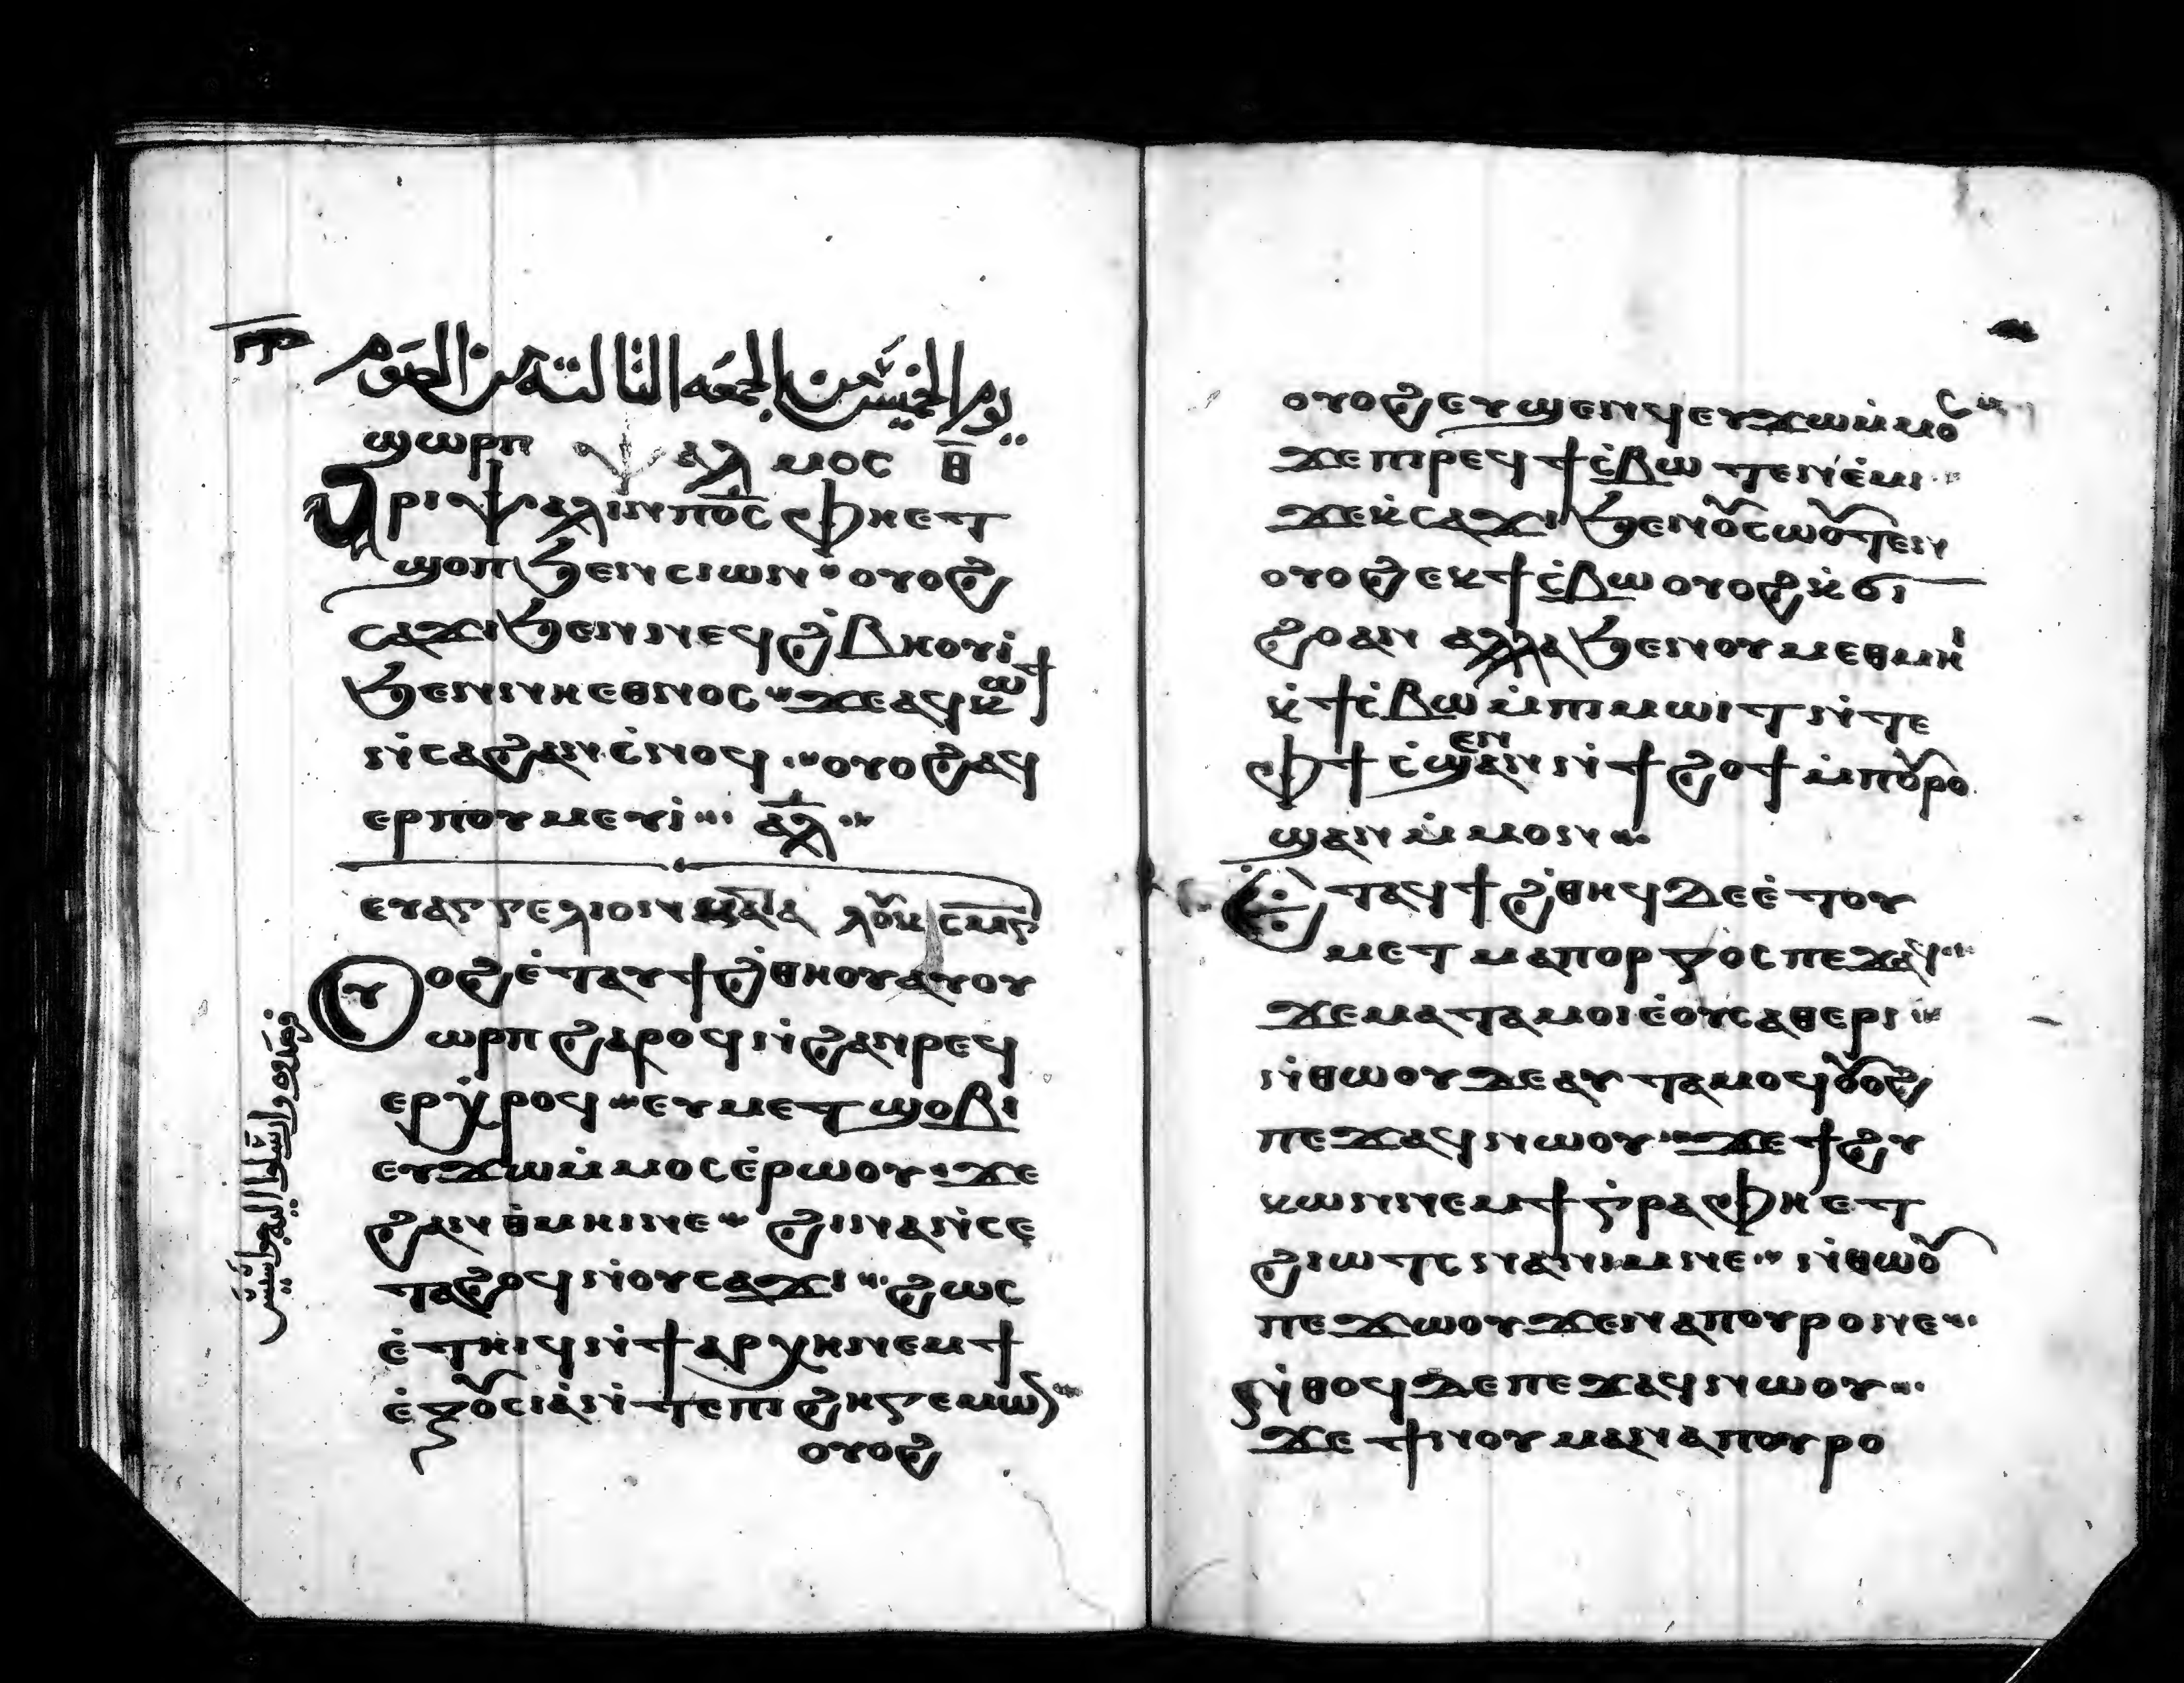 يوم الخميس من الجمعه الثالثة من الصوم
ϣⲱⲣⲡ ⲯⲁⲗⲙⲟⲥ ⲑ̅
ⲁⲣⲓⲯⲁⲗⲓⲛⲡⲟ̅ⲥ̅ ⲫⲏⲉⲧ
ϣⲟⲡϧⲉⲛⲥⲓⲱⲛ ⲟⲩⲟϩ
ⲥⲁϫⲓϧⲉⲛⲛⲉϥϩ̀ⲃⲏⲟⲩⲓ̀
ϧⲉⲛⲛⲓⲉⲑⲛⲟⲥ ϫⲉⲁϥⲕⲱϯ
ⲛ̀ⲥⲁϩⲁⲛⲥ̀ⲛⲟϥ ⲟⲩⲟϩⲁϥ
ⲉⲣⲡⲟⲩⲙⲉⲩⲓ̀ ⲁⲗ
ⲉⲩⲁⲅⲅⲉⲗⲓⲟⲛ ⲕⲁⲧⲁ ⲗⲟⲩⲕ ⲥⲙⲅ
ⲟⲩⲟϩⲉ̀ⲧⲁⲩϯϩ̀ⲑⲏⲟⲩⲁⲩⲟⲩ
ⲱⲣⲡ ϩⲁⲣⲟϥⲛ̀ϩⲁⲛⲣⲉϥ
ⲉⲣⲭ̀ⲣⲟϥ ⲉⲩⲙⲉⲧϣⲟⲃⲓ
ⲉⲩϫⲱⲙ̀ⲙⲟⲥⲉ̀ⲣⲱⲟⲩ ϫⲉ
ϩⲁⲛⲑ̀ⲙⲏⲓⲛⲉ ϩⲓⲛⲁⲛ̀ⲥⲉ
ⲧⲁϩⲟϥⲛ̀ⲟⲩⲥⲁϫⲓ ϩⲱⲥ
ⲉ̀ⲧⲏⲓϥⲛ̀ϯⲁⲣⲭⲏⲛⲉⲙϯ
ⲉ̀ⲝⲟⲩⲥⲓⲁ̀ⲛ̀ⲧⲉⲡⲓϩⲏⲅⲉⲙⲱⲛ
ⲟⲩⲟϩ
ⲟⲩⲟϩⲉⲩϣⲉⲛϥⲉⲩϫⲱⲙ̀ⲙⲟⲥ
ϫⲉⲡⲓⲣⲉϥϯⲥ̀ⲃⲱ ⲧⲉⲛⲉ̀ⲙⲓ
ϫⲉⲕ̀ⲥⲁϫⲓ ϧⲉⲛⲟⲩⲥⲱⲟⲩⲧⲉⲛ
ⲟⲩⲟϩⲉⲕϯⲥ̀ⲃⲱⲟⲩⲟϩⲕ̀ϭⲓ
ϩⲟⲁⲛ ⲁⲗⲗⲁϧⲉⲛⲟⲩⲙⲉⲑⲙⲏⲓ
ⲕ̀ϯⲥ̀ⲃⲱⲙ̀ⲡⲓⲙⲱⲓⲧⲛ̀ⲧⲉ
ⲫϯ ⲥ̀ϣⲉⲛⲛ̀ϯϩⲟϯⲙ̀ⲡⲟⲩⲣⲟ
ϣⲁⲛⲙ̀ⲙⲟⲛ
ⲉⲧⲁϥϯϩ̀ⲑⲏϥⲇⲉⲉ̀ⲧⲟⲩ
ⲙⲉⲧⲡⲁⲛⲟⲣⲅⲟⲥ ⲡⲉϫⲁϥ
ϫⲉⲙⲁⲧⲁⲙⲟⲓⲉ̀ⲟⲩⲥⲁⲑⲉⲣⲓ
ⲛ̀ⲑⲱⲟⲩⲇⲉⲁⲩⲧⲁⲙⲟϥⲟⲩⲟϩ
ⲡⲉϫⲁϥⲛⲱⲟⲩ ϫⲉϯϩⲩ
ⲕⲱⲛⲛⲉⲙϯⲅ̀ⲣⲁⲫⲏⲉⲧ
ϩⲓⲱⲧⲥⲛⲁⲛⲓⲙⲛⲉ ⲛ̀ⲑⲱⲟⲩ
ⲡⲉϫⲱⲟⲩϫⲉⲛⲁⲡⲟⲩⲣⲟⲛⲉ
ⲛ̀ⲑⲟϥⲇⲉⲡⲉϫⲁϥⲛⲱⲟⲩ
ϫⲉϯⲛⲟⲩⲙⲁⲛⲁⲡⲟⲩⲣⲟ